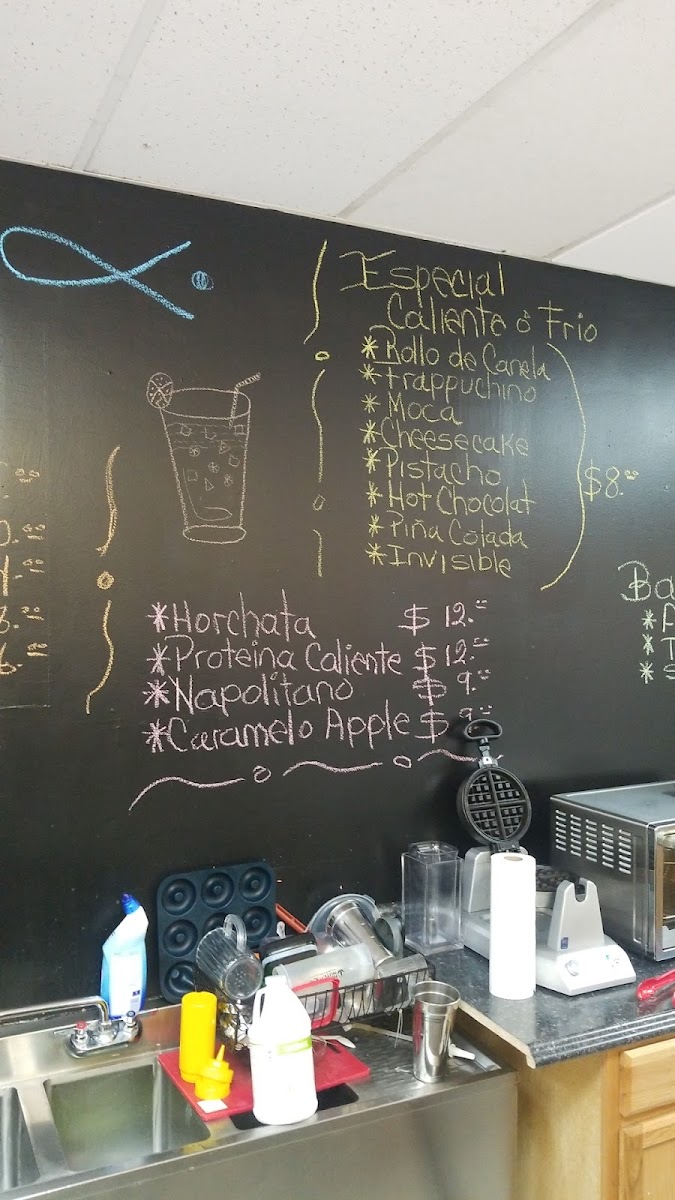 Especial
Caliente ó Frio
*Rollo de Canela
*Frappuchino
*Moca
*Cheesecake
*Pistacho
*Hot Chocolat
*Piña Colada
*Invisible
$8.00
*Horchata $12.00
*Proteina Caliente $12.00
*Napolitano $9.00
*Caramelo Apple $9.00
Ba